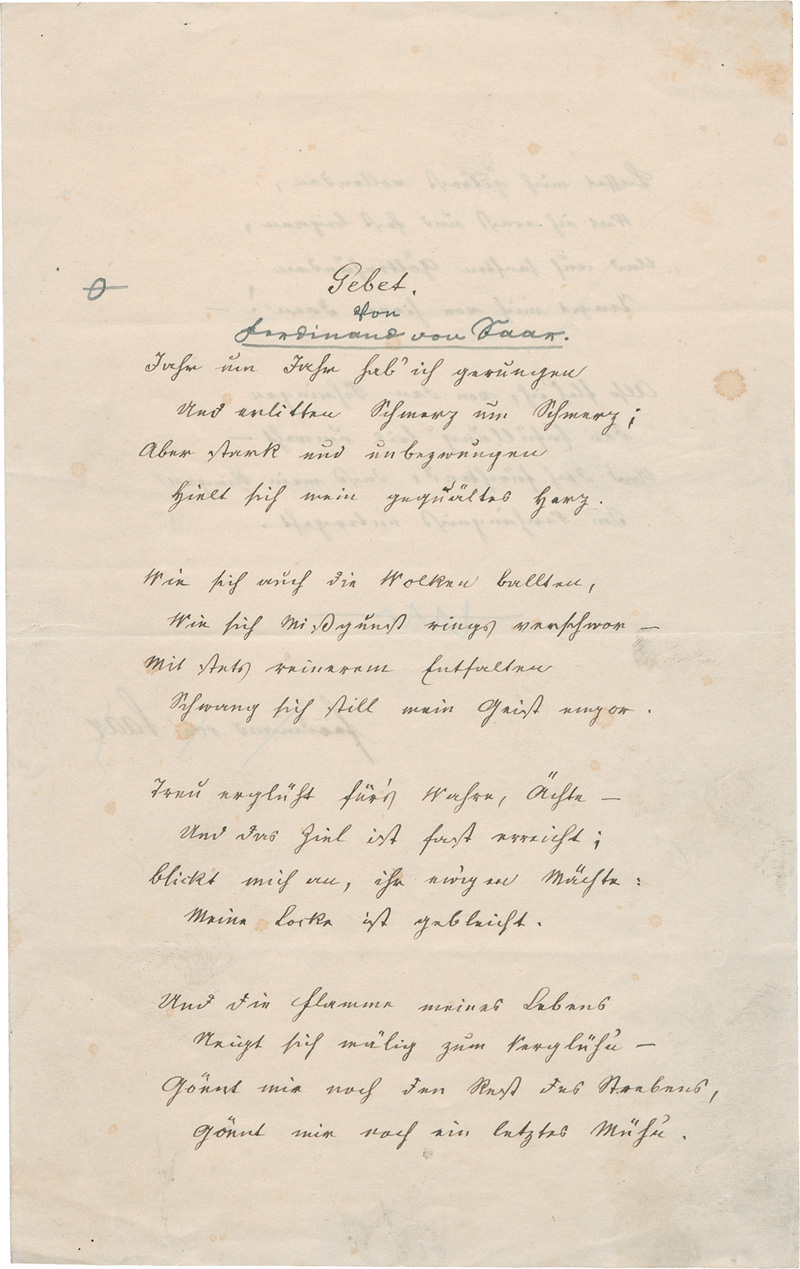 Gebet.
Von
Ferdinand von Saar.
Jahr um Jahr hab' ich gerungen
Und erlitten Schmerz um Schmerz;
Aber stark und unbezwungen
Hielt sich mein gequältes Herz.
Wie sich auch die Wolken ballten,
Wie sich Mißgunst rings verschwor —
Mit stets reinerem Entfalten
Schwang sich still mein Geist empor.
Treu erglüht für's Wahre, Ächte —
Und das Ziel ist fast erreicht;
Blickt mich an, ihr ew'gen Mächte:
Meine Locke ist gebleicht.
Und die Flamme meines Lebens
Neigt sich mälig zum Verglüh'n —
Gönnt mir noch den Rest des Strebens,
Gönnt mir noch ein letztes Müh'n.